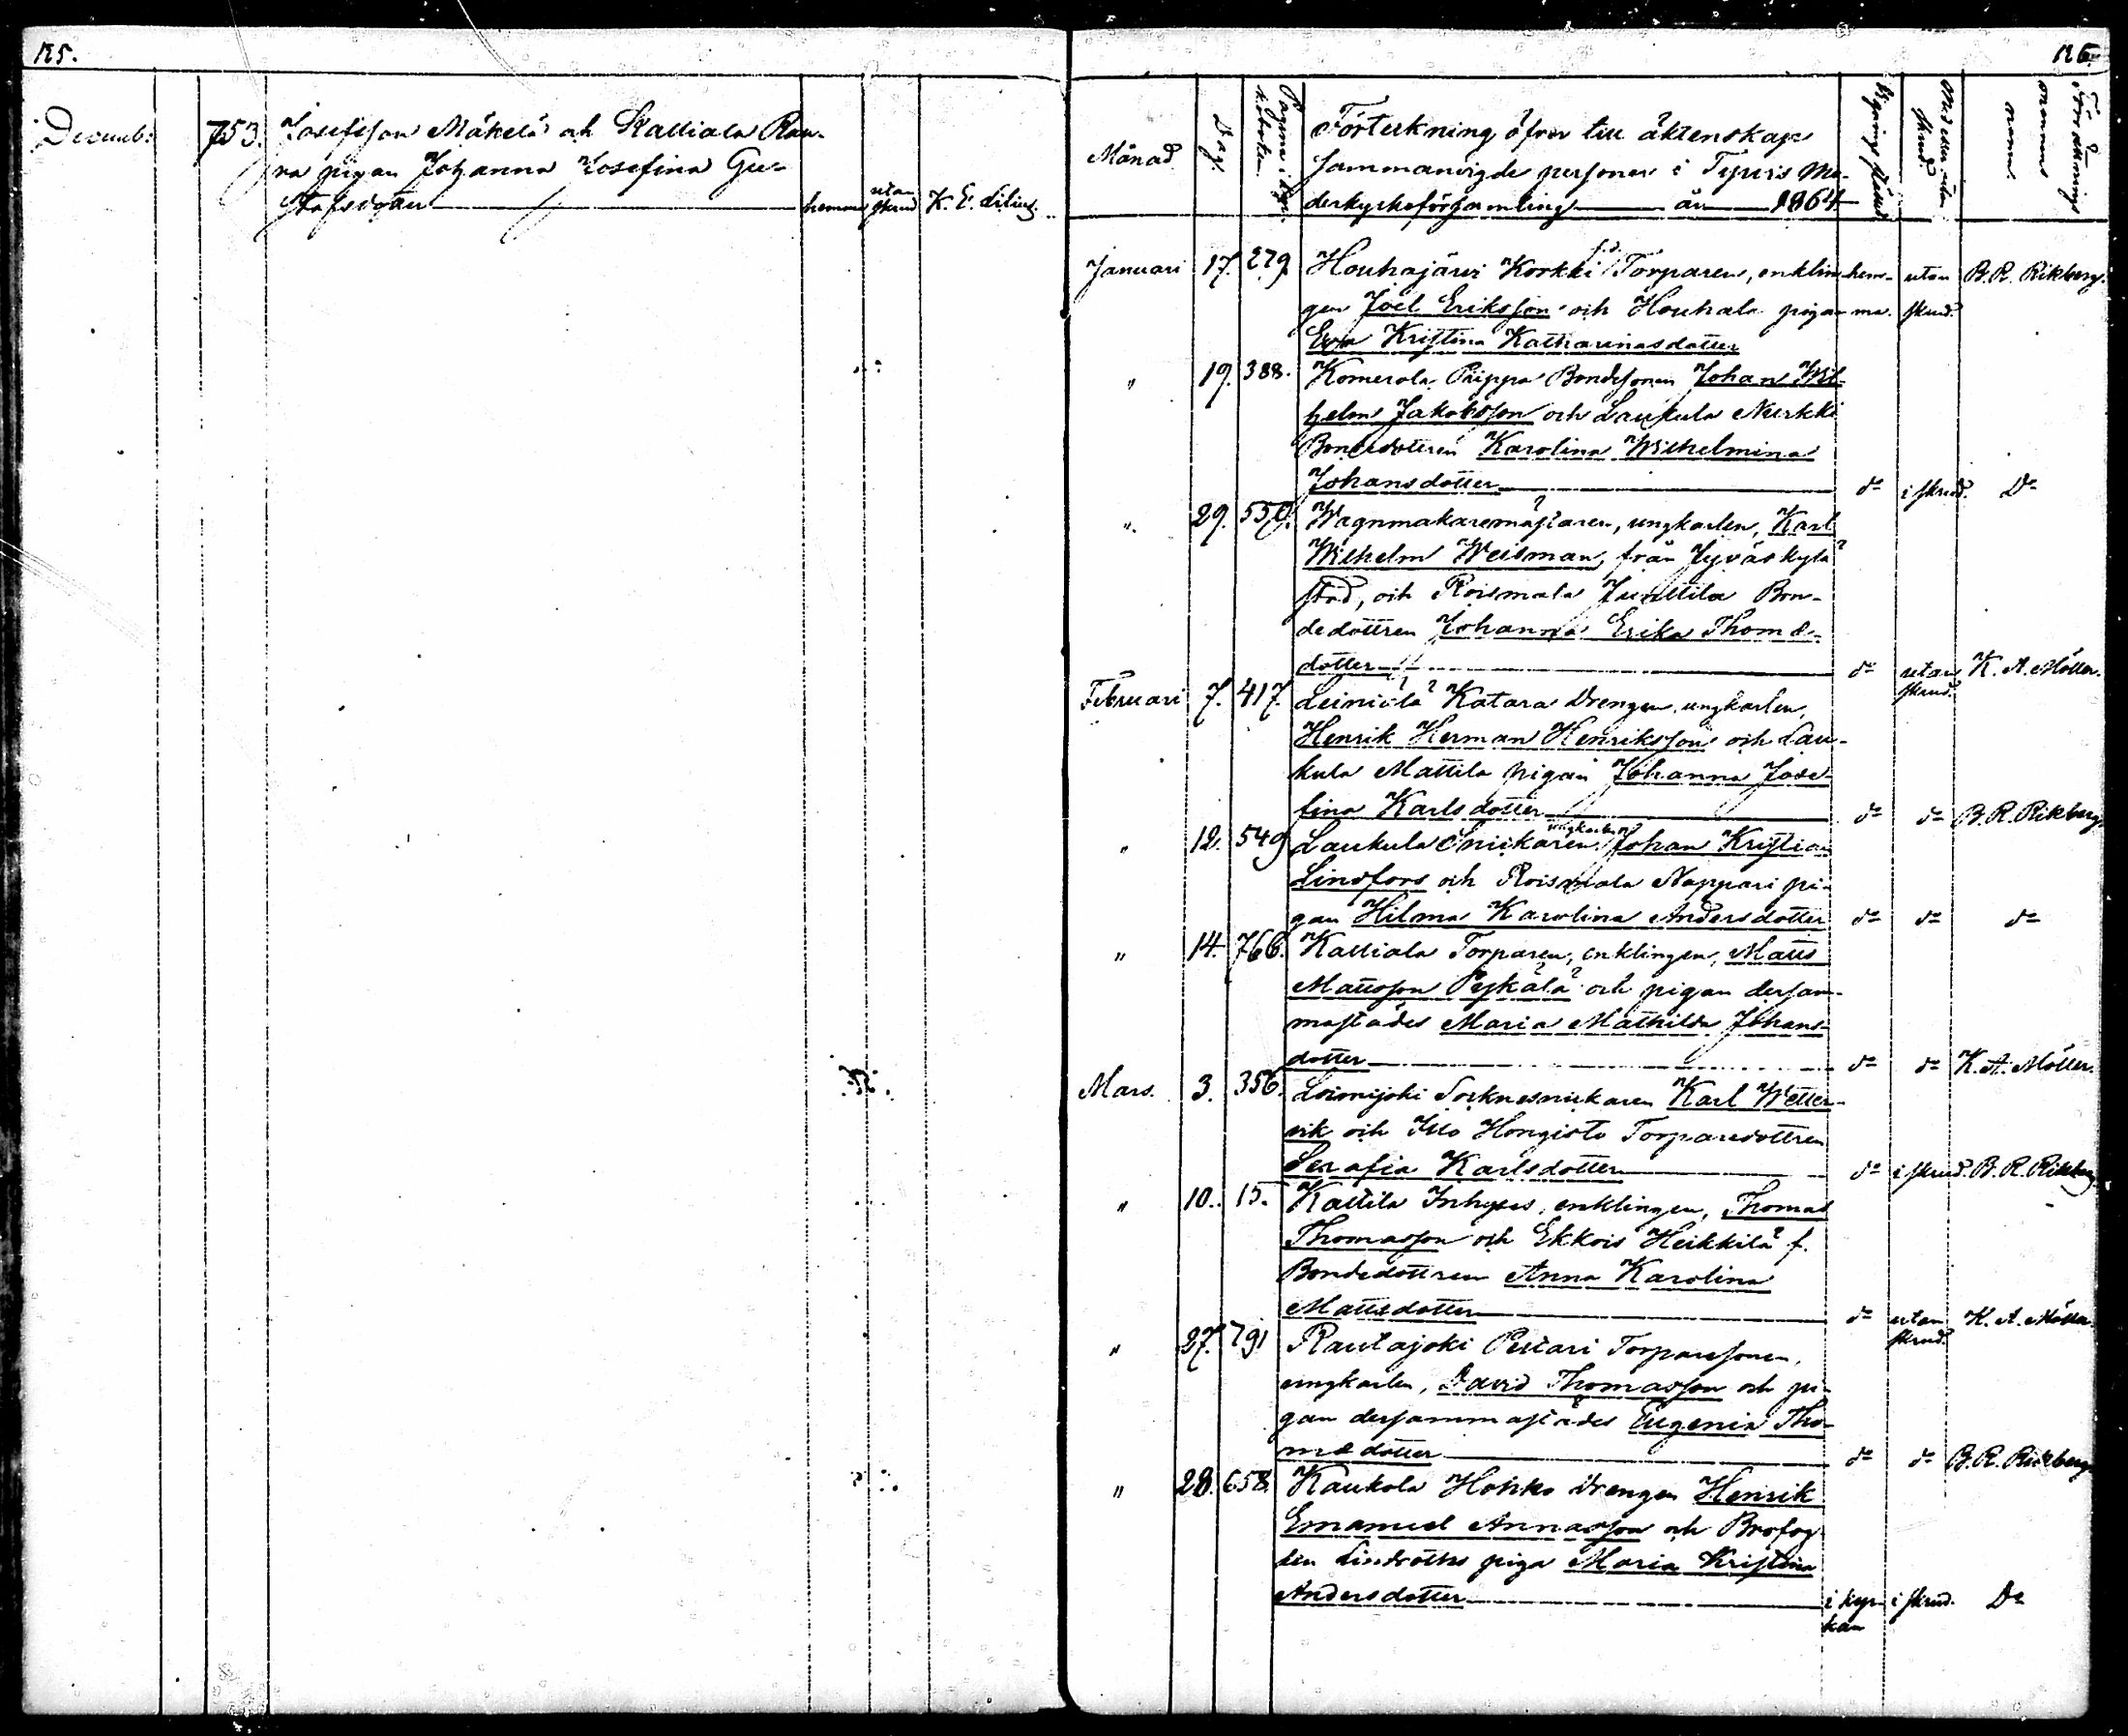 125.
Decemb: 753. Josefsson Mäkelä och Kalliala Rau-
na pigan Johanna Josefina Gu-
stafsdotter hemma utan skrud K. E. Lilius.
126.
Månad Dag. Pagina i kyr. k.boken. Förtekning öfver till äktenskap Vignings ställe Med eller utan skrud Förrättnings mannens namn.
sammanvigde personer i Tyrvis Mo-
derkyrkoförsamling år 1864
Januari 17. 279. Houhajärvi Korkki f.d. Torparen, enklin- hem- utan B. R. Rikberg.
gen Joël Eriksson och Houhala pigan ma. skrud.
Eva Kristina Katharinasdotter
" 19. 388. Komerola Prippa Bondesonen Johan Wil-
helm Jakobsson och Laukula Nurkki
Bondedottren Karolina Wilhelmina
Johansdotter do i skrud. Do
" 29. 550. Wagnmakaremästaren, ungkarlen, Karl
Wilhelm Weisman, från Jyväskylä
stad, och Roismala Junttila Bon-
dedottren Johanna Erika Thomæ-
dotter do utan skrud. K. A. Möller.
Februari 7. 417. Leiniälä Katara Drengen, ungkarlen,
Henrik Herman Henriksson och Lau-
kula Mattila pigan Johanna Jose-
fina Karlsdotter do do B. R. Rikberg.
" 12. 549 Laukula Snickaren, ungkarlen Johan Kristian
Lindfors och Roismala Nappari pi-
gan Hilma Karolina Andersdotter do do do
" 14. 766. Kalliala Torparen, enklingen, Matts
Mattsson Pykälä och pigan dersam-
mastädes Maria Mathilda Johans-
dotter do do K. A. Möller.
Mars. 3. 356. Loimijoki Socknesnickaren Karl Wetter-
vik och Illo Hongisto Torparedottren
Serafia Karlsdotter do i skrud. B. R. Rikberg
" 10. 15. Kallila Inhyses, enklingen, Thomas
Thomasson och Ekkois Heikkilä f.
Bondedottren Anna Karolina
Mattsdotter do utan skrud. K. A. Möller.
" 27. 791 Rautajoki Pertari Torparesonen,
ungkarlen, David Thomasson och pi-
gan dersammastädes Eugenia Tho-
mædotter do do B. R. Rikberg
" 28. 658. Kaukola Hohko drengen Henrik
Emanuel Annasson och Brofog-
den Lindroths piga Maria Kristina
Andersdotter i kyr- i skrud. Do
kan